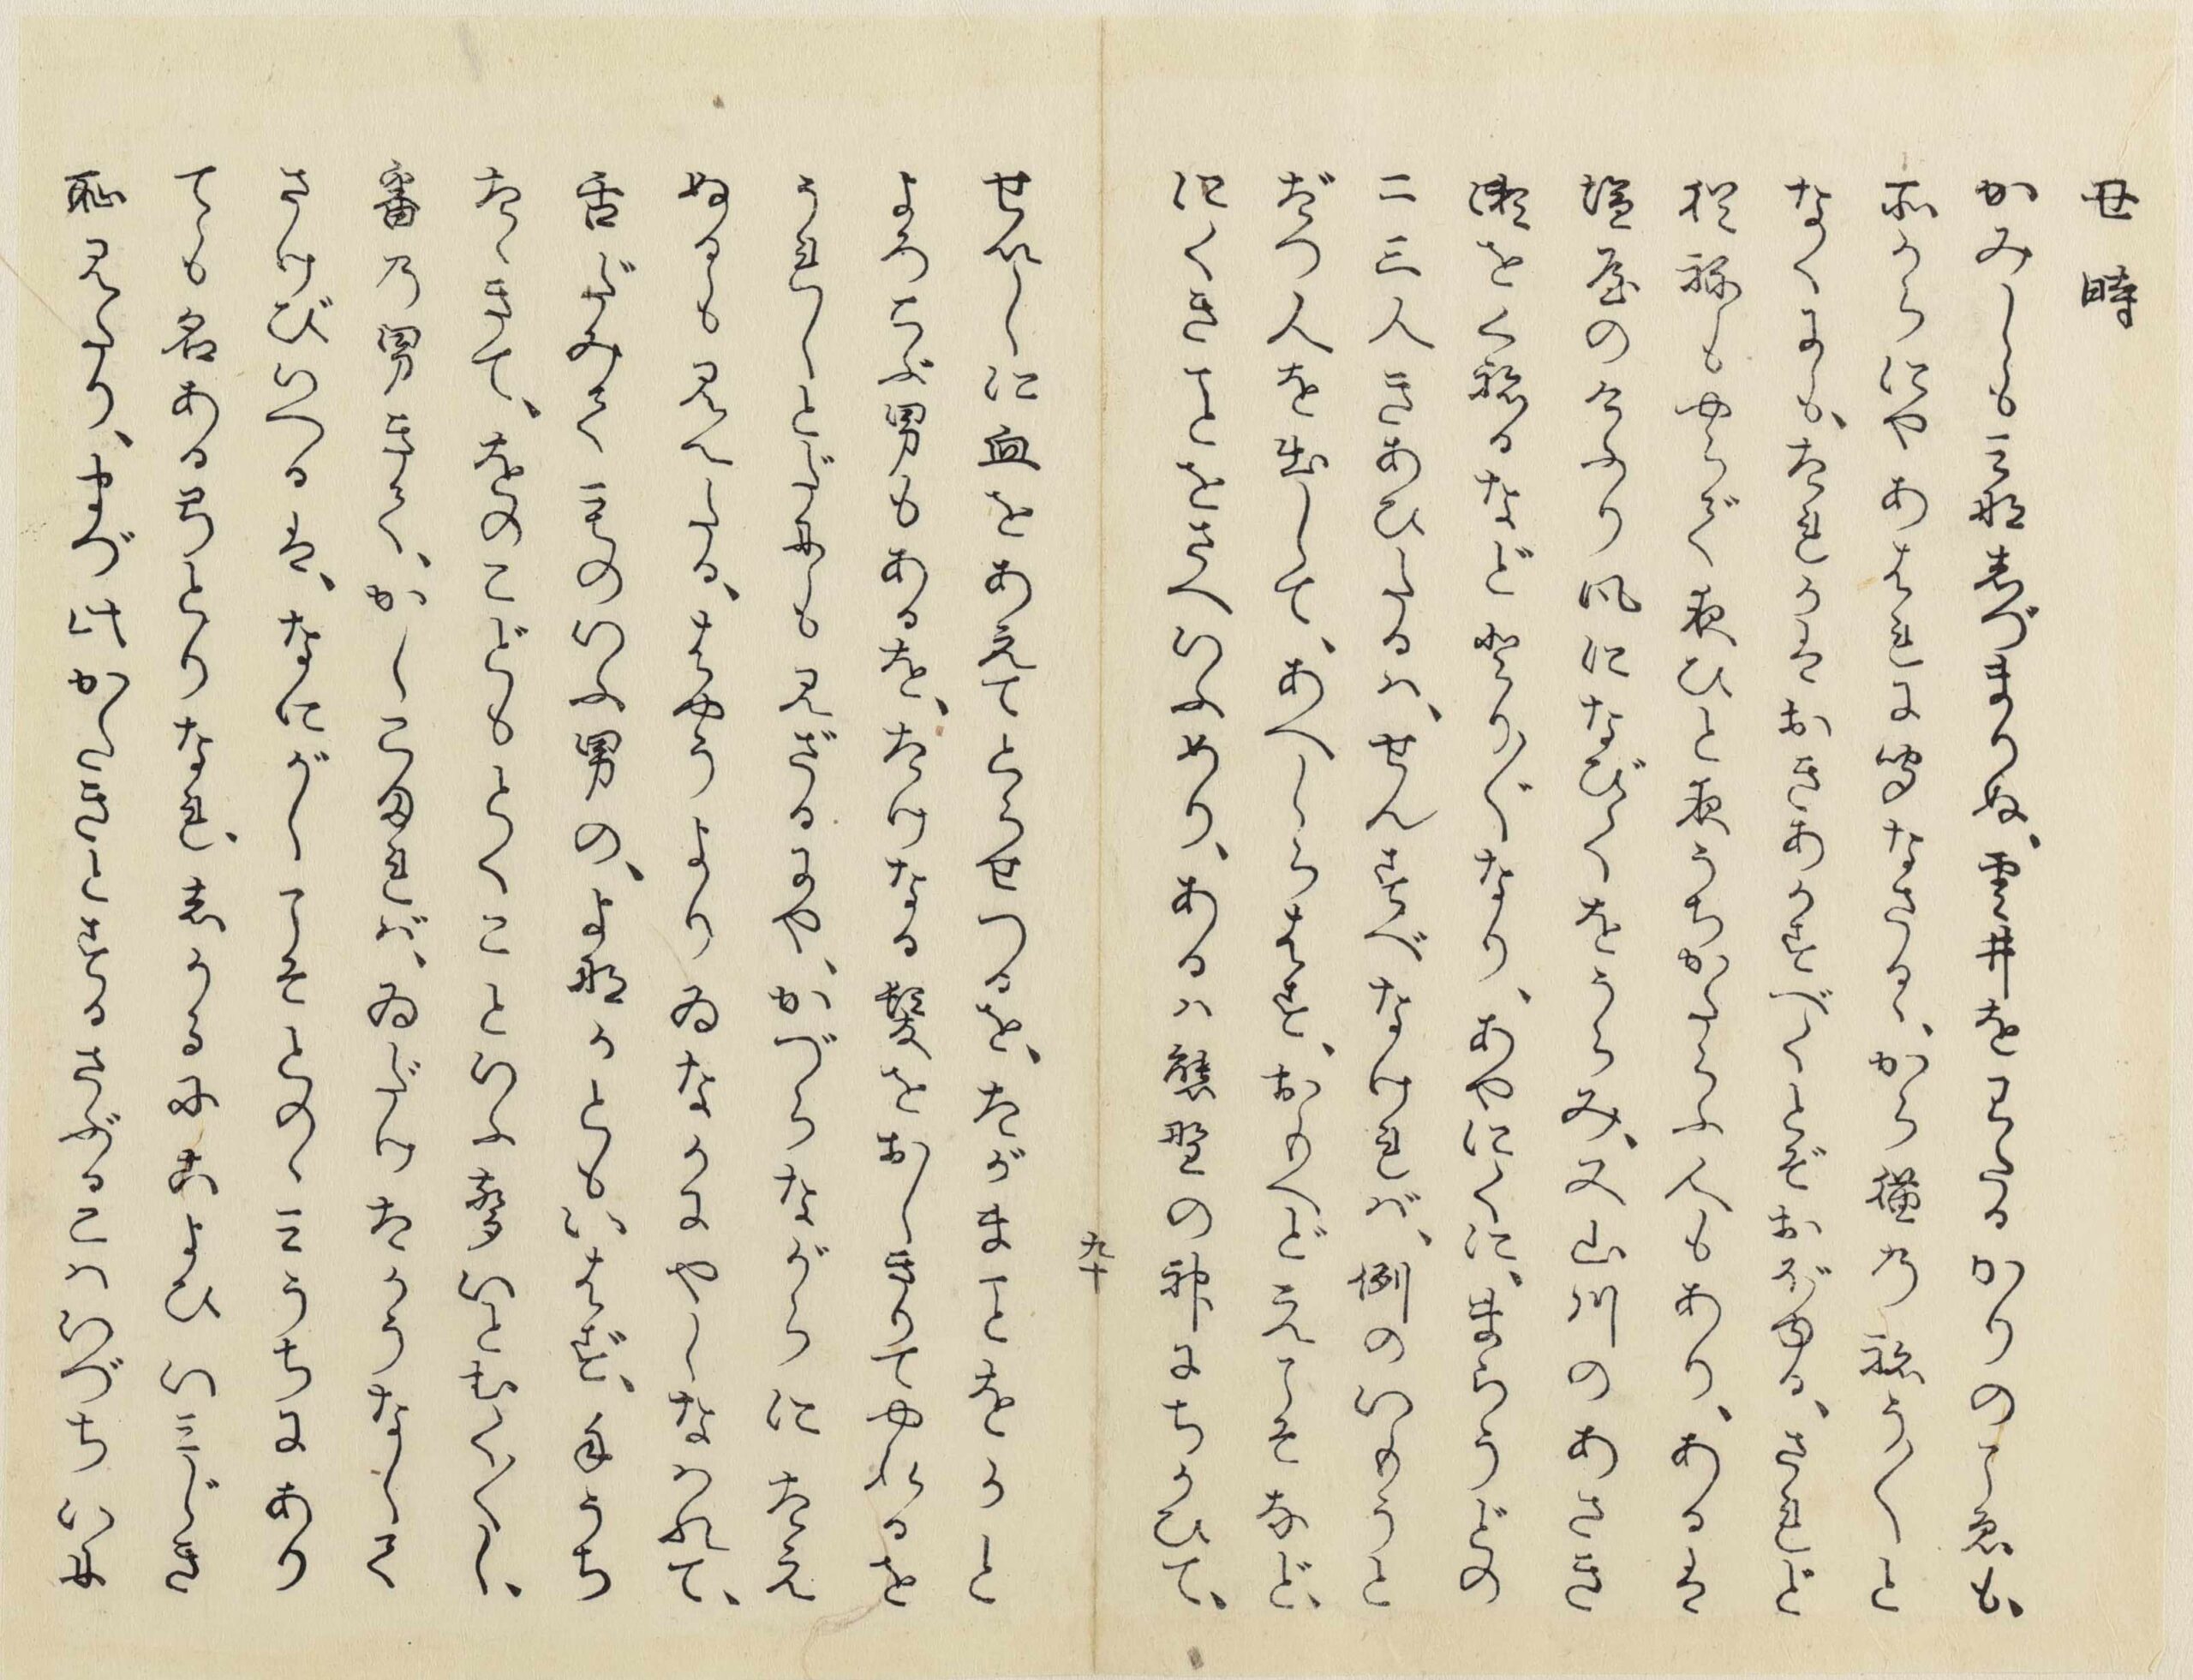 丑時
かみしも三つ四つ志づまりぬ、雲井をわたるかりのこゑも、
所からにやあはれに聞なさるゝ、から猫のねうくと
なくにも、たれかはおきあかすべくとぞおぼゆる、されど
猶祢もやらで衣ひと衣うちかたらふ人もあり、あるは
塩屋のけふり風になびくをうらみ、又山川のあさき
瀬をくねるなどさまかくなり、あやにくに、まらうどの
二三人きあひたるは、せんすべなければ、例のいもうと
だつ人を出して、あへしらはす、おもへどえこそなど、
にくきことをさへいふめり、あるは熊野の神にちかひて、
九十
せいしに血をあえてとらせつるを、たがまことをかと
よろこぶ男もあるを、たけなる髪をおしきりてやれるを
うれしとだにも見ざるにや、かづらながらにたえ
ぬるも見えたる、はやうよりゐなかにやしなはれて、
舌だみて言のいふ男の、よなかともいはず、手うち
たゝきて、をのこどもとくことといふ声いとむくし、
番の男きて、かしこまれば、ゐだけたかうなして
さけびいへるは、なにがしこそとのゝうちにあり
ても名あるゆみとりなれ、志かるにこよひいみじき
恥見たり、まづ けかたきとするさぶるこはいづちいに